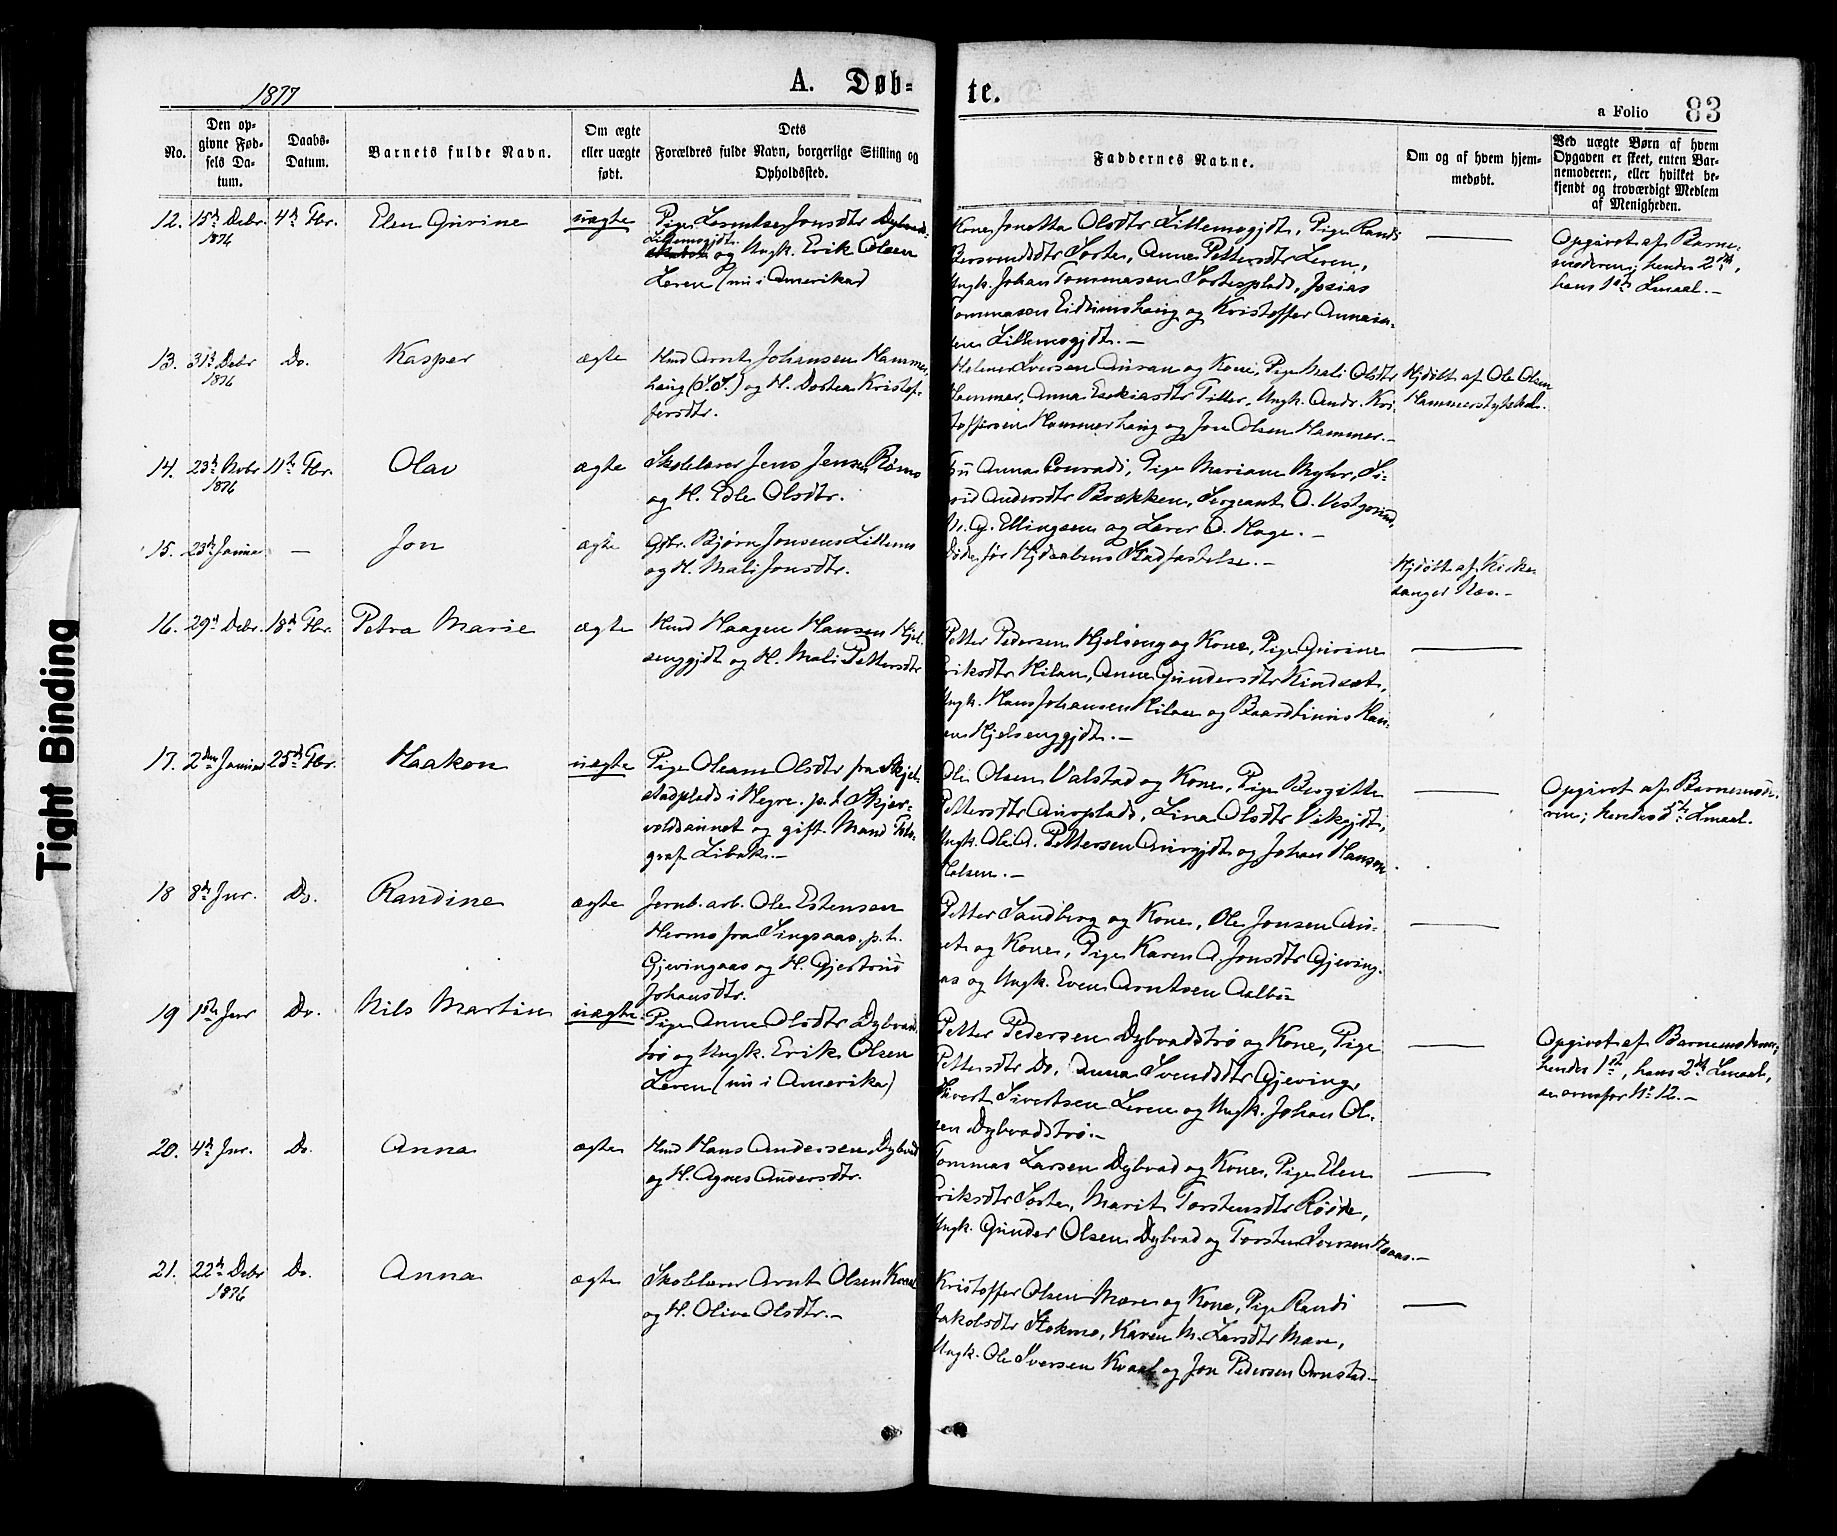 1877
A. Døb-
te.
a Folio 83
No.
Den op-
givne Fød-
sels Da-
tum.
Daabs-
Datum.
Barnets fulde Navn.
Om ægte
eller uægte
født.
Dets
Forældres fulde Navn, borgerlige Stilling og
Opholdssted.
Faddernes Navne.
Om og af hvem hjem-
medøbt.
Ved uægte Børn af hvem
Opgaven er skeet, enten Bar-
nemoderen, eller hvilket be-
kjendt og troværdigt Medlem
af Menigheden.
12. 15de Debr. 4de Fbr. Elen Gurine uægte
1876
Pige Jonsdtr Dybvad
Lillemogjdt.
og Ungk. Erik Olsen
Leren (nu i Amerika)
Kone Jonetta Olsdtr Lillemogjdt, Pige Randi
Bersvendsdtr Sorte, Anne Pettersdtr Leren,
Ungk. Johan Tommasen Sorteplads, Josias
Tommasen og Kristoffer
Lillemogjdt. —
Opgivet af Barne-
moderen; hendes 2det,
hans 1ste Lmaal. —
13. 31te Debr Do. Kasper ægte
1876
Hmd Arnt Johansen Hammer-
haug (S.S.) og H. Dortea Kristof-
fersdtr.
Helmer Iversen Auran og Kone, Pige Mali Olsdtr
Hammer, Anna Esekiasdtr Tiller, Ungk. Andr. Kri-
stoffersen Hammerhaug og Jon Olsen Hammer. —
Hjdøbt af Ole Olsen
14. 23de Novbr 11te Fbr. Olav ægte
1876
Skolelærer Jens Jensen Rømo
og H. Edle Olsdtr.
Fru Anna Conradi, Pige Mariane Myhr, Si-
grid Andersdtr Brækken, Sergeant O. Vestgaard,
G. Ellingsen og Lærer O. Hage. —
15. 23de Januar — Jon ægte
Gbr. Bjørn Jonsen Lillemo
og H. Mali Jonsdtr.
Døde før Hjdaabens Stadfæstelse. —
Hjdøbt af Kirke-
sanger Næs. —
16. 29de Debr. 18de Fbr. Petra Marie ægte
Hmd Haagen Hansen Hjel-
senggjdt og H. Mali Pettersdtr
Petter Pedersen Hjelseng og Kone, Pige Gurine
Eriksdtr Hilan, Anne Gundersdtr Kindset,
Ungk. Hans Johansen Hilan og Baard Han-
sen Hjelsenggjdt. —
17. 2den Januar 25de Fbr. Haakon uægte
Pige Oleane Olsdtr fra Skjel-
stadplads i Hegre. p.t. Skjer-
voldsaunet og gift. Mand Tele-
graf. Libak. —
Ole Olsen Valstad og Kone, Pige Bergitte
Pettersdtr Aunplads, Lina Olsdtr Vikgjdt,
Ungk. Ole A. Pettersen og Johan Hansen
Halsen. —
Opgivet af Barnemode-
ren; hendes 5te Lmaal.
18 8de Jnr. Do. Randine ægte
Jernb. arb. Ole Estensen
Hermo fra Singsaas. p.t.
Gjevingaas og H. Gjertrud
Johansdtr.
Petter Sandberg og Kone, Ole Jonsen Au-
net og Kone, Pige Karen A. Jonsdtr Gjeving-
aas og Ungk. Even Arntsen Aalbu
19 1ste Jnr Do. Nils Martin uægte
Pige Anne Olsdtr Dybvad-
trø og Ungk. Erik Olsen
Leren (nu i Amerika)
Petter Pedersen Dybvadstrø og Kone, Pige
Pettersdtr Do. Anna Svendsdtr Gjeving,
Sivert Sivertsen Leren og Ungk. Johan Ol-
sen Dybvadstrø. —
Opgivet af Barnemoderen;
hendes 1ste, hans 2det Lmaal,
se ovenfor No 12. —
20. 4de Jnr. Do. Anna ægte
Hmd Hans Andersen Dybvad
og H. Agnes Andersdtr.
Tommas Larsen Dybvad og Kone, Pige Elen
Eriksdtr Sorte, Marit Torstensdtr Røøde,
Ungk. Gunder Olsen Dybvad og Torsten Iversen —
21. 22de Debr Do. Anna ægte
1876
Skolelærer Arnt Olsen Kvaal
og H. Olive Olsdtr. —
Kristoffer Olsen Mære og Kone, Pige Randi
Jakobsdtr Stokmo, Karen M. Larsdtr Mære,
Ungk. Ole Iversen Kvaal og Jon Pedersen Arnstad. —
Tight Binding